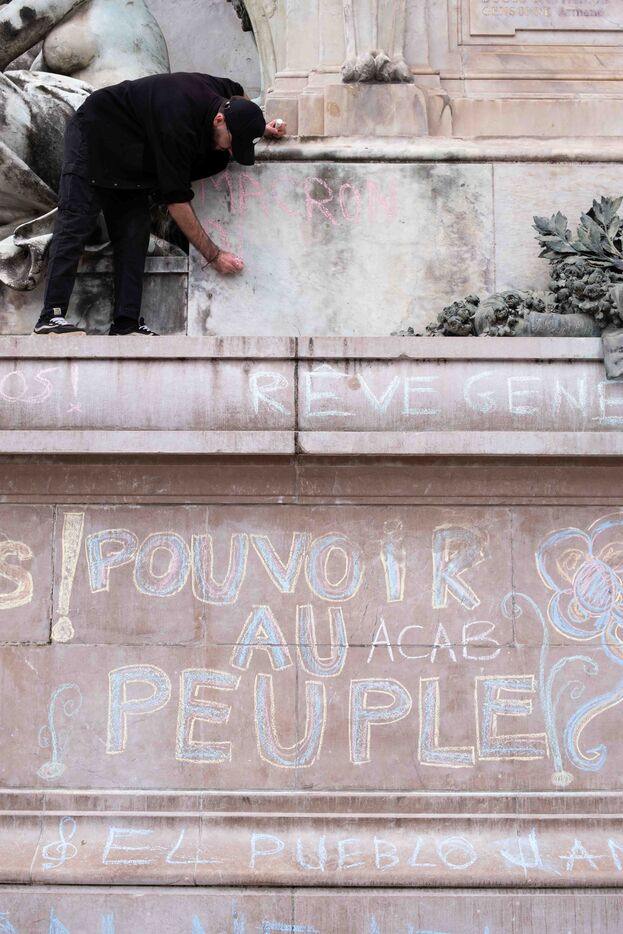 GENSONNÉ Armand
MACRON
OS!
RÊVE GENE
S! POUVOIR
AU ACAB
PEUPLE
EL PUEBLO UN